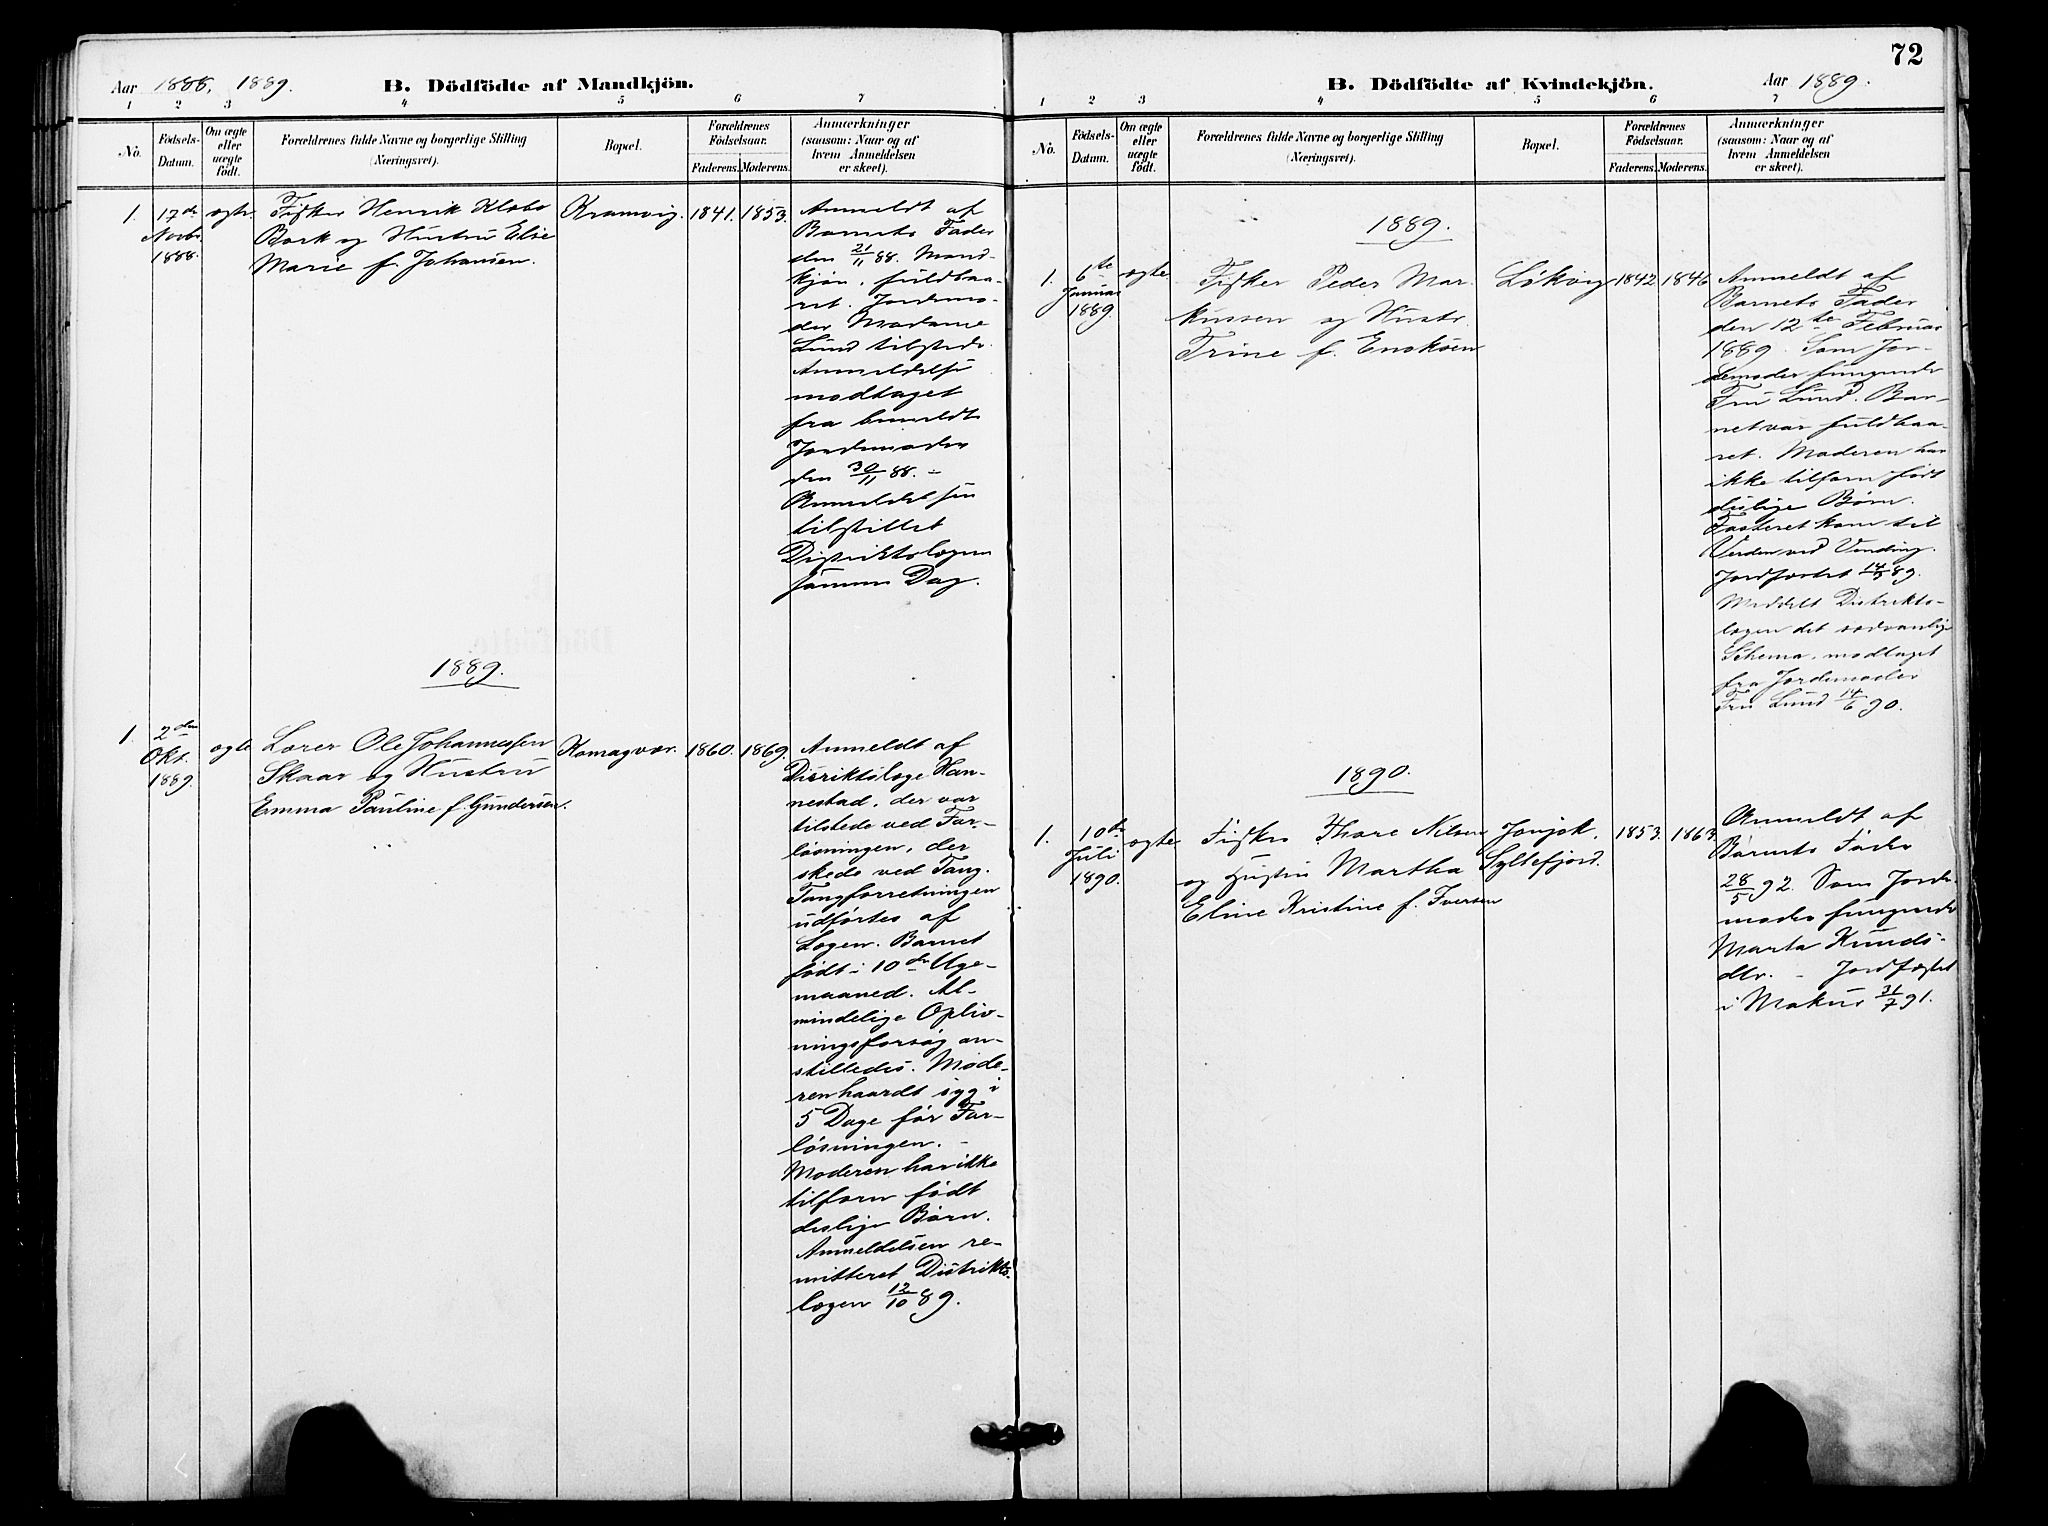 Aar 1888, 1889. B. Dödfödte af Mandkjön.
1 2 3 4 5 6 7
No. Födsels-Datum. Om ægte eller uægte födt. Forældrenes fulde Navne og borgerlige Stilling (Næringsvei). Bopæl. Forældrenes Födselsaar. Faderens. Moderens. Anmærkninger (saasom: Naar og af hvem Anmeldelsen er skeet).
1. 17de Novbr 1888. ægte. Fisker Henrik Klabo
Bark og Hustru Elise
Marie f. Johansen.
Kramvig. 1841. 1853.
Anmeldt af
Barnets Fader
den 21/11 88. Mand-
kjön, fuldbaa-
ret. Jordemo-
der Madame
Lund tilstede.
Anmeldelse
modtaget
fra bemeldte
Jordemoder
den 30/11 88. –
Anmeldelsen
tilstillet
Distriktslægen
samme Dag.
1889.
1. 2den Okt. 1889. ægte
Lærer Ole Johannessen
Skaar og Hustru
Emma Pauline f. Gundersen.
Komagvær. 1860. 1869.
Anmeldt af
Disriktslæge Han-
nestad, der var
tilstede ved For-
løsningen, der
skede ved Tang.
Tangforretningen
udførtes af
Lægen. Barnet
født i 10de Uge-
maaned. Al-
mindelige Opliv-
ningsforsøg an-
stilledes. Mode-
ren haardt syg i
5 Dage før For-
løsningen. –
Moderen har ikke
tilforn født
deslige Børn.
Anmeldelsen re-
mitteret Distrikts-
lægen 12/10 89.
72
B. Dödfödte af Kvindekjön. Aar 1889.
1 2 3 4 5 6 7
No. Födsels-Datum. Om ægte eller uægte födt. Forældrenes fulde Navne og borgerlige Stilling (Næringsvei). Bopæl. Forældrenes Födselsaar. Faderens. Moderens. Anmærkninger (saasom: Naar og af hvem Anmeldelsen er skeet).
1889.
1. 6te Januar 1889. ægte.
Fisker Peder Mar-
kussen og Hustr.
Trine f. Enoksen
Løkvig 1842 1846
Anmeldt af
Barnets Fader
den 12te Februar
1889. Som Jor-
demoder fungerede
Fru Lund. Bar-
net var fuldbaa-
ret. Moderen har
ikke tilforn født
deslige Børn.
Fosteret kom til
Verden ved Vending.
Jordfæstet 14/5 89.
Meddelt Distrikts-
lægen det sædvanlige
Schema, modtaget
fra Jordemoder
Fru Lund 14/6 90.
1890.
1. 10de Juli 1890. ægte
Fisker Thore Nilsen
og Hustru Martha
Eline Kristine f. Iversen
Jonjok, Syltefjord. 1853. 1863.
Anmeldt af
Barnets Fader
28/5 92. Som Jorde-
moder fungerede
Marta Knuds-
dtr. – Jordfæstet
i Makur 31/7 91.